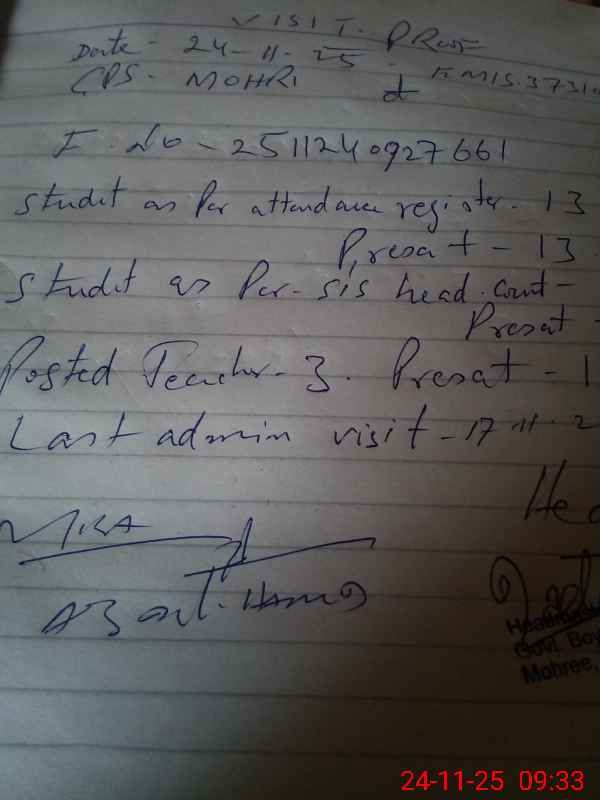 VISIT. PROOF
Date - 24-11-25.
GPS. MOHRI EMIS.37310
I. No - 251124092 7661
Studet as Per attendance register - 13
Presat - 13
Studet as Per- sis head. count -
Presat -
Posted Teacher - 3. Presat - 1
Last admin visit - 17.11.2
Hea
Head
Govt. Boy
Mohree,
24-11-25 09:33